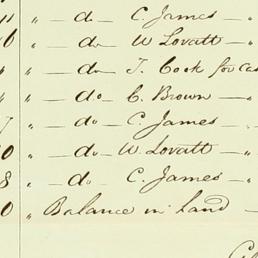 11 " — do — C. James — "
6 " — do — W. Lovatt — "
" — do — T. Cook for Cas
" — do — C. Brown — "
7 " — do — C. James — "
0 " — do — W. Lovatt — "
8 " — do — C. James — "
0 " Balance in hand —